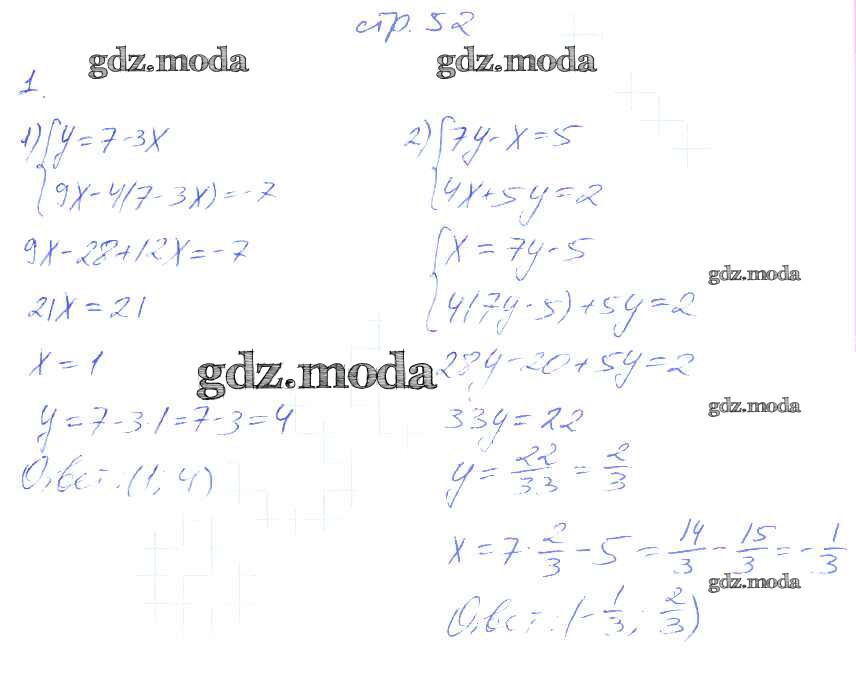 стр. 52
gdz.moda gdz.moda
1.
1) { y = 7 - 3x
9x - 4(7 - 3x) = -7
9x - 28 + 12x = -7
21x = 21
x = 1
gdz.moda
y = 7 - 3·1 = 7 - 3 = 4
Ответ: (1; 4)
2) { 7y - x = 5
4x + 5y = 2
{ x = 7y - 5
gdz.moda
4(7y - 5) + 5y = 2
28y - 20 + 5y = 2
gdz.moda
33y = 22
y = 22/33 = 2/3
x = 7 · 2/3 - 5 = 14/3 - 15/3 = -1/3
gdz.moda
Ответ: (-1/3; 2/3)